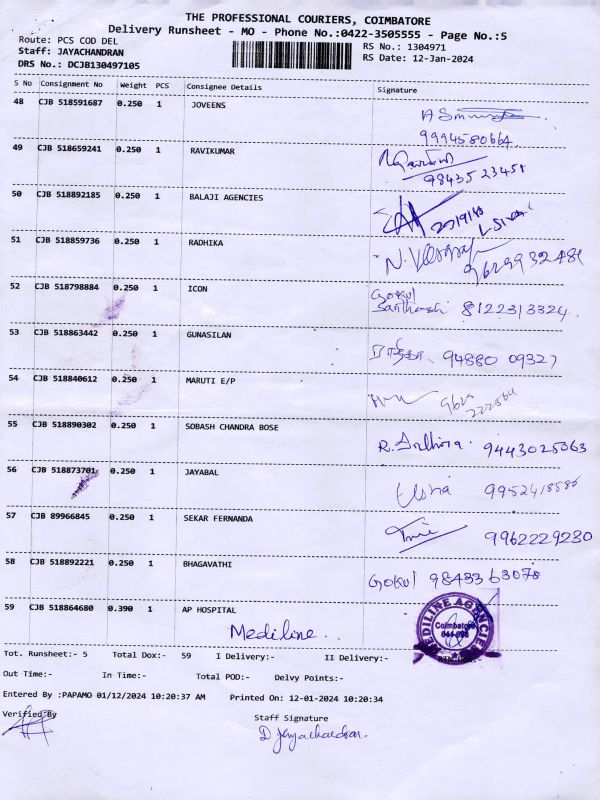 THE PROFESSIONAL COURIERS, COIMBATORE
Delivery Runsheet - MO - Phone No.:0422-3505555 - Page No.:5
Route: PCS COD DEL
RS No.: 1304971
Staff: JAYACHANDRAN
RS Date: 12-Jan-2024
DRS No.: DCJB130497105
S No Consignment No Weight PCS Consignee Details Signature
48 CJB 518591687 0.250 1 JOVEENS
9994580664
49 CJB 518659241 0.250 1 RAVIKUMAR
98435 23451
50 CJB 518892185 0.250 1 BALAJI AGENCIES
51 CJB 518859736 0.250 1 RADHIKA
9629932486
52 CJB 518798884 0.250 1 ICON
Gokul
Santhosh 8122313324
53 CJB 518863442 0.250 1 GUNASILAN
94880 09327
54 CJB 518840612 0.250 1 MARUTI E/P
55 CJB 518890302 0.250 1 SOBASH CHANDRA BOSE
R. 9443025363
56 CJB 518873701 0.250 1 JAYABAL
Usha 9952418586
57 CJB 89966845 0.250 1 SEKAR FERNANDA
9962229230
58 CJB 518892221 0.250 1 BHAGAVATHI
Gokul 9843363078
59 CJB 518864680 0.390 1 AP HOSPITAL
Mediline.
MEDILINE AGENCIES
Coimbatore
Tot. Runsheet:- 5 Total Dox:- 59 I Delivery:- II Delivery:-
Out Time:- In Time:- Total POD:- Delvy Points:-
Entered By :PAPAMO 01/12/2024 10:20:37 AM Printed On: 12-01-2024 10:20:34
Verified By Staff Signature
D Jayachandran.